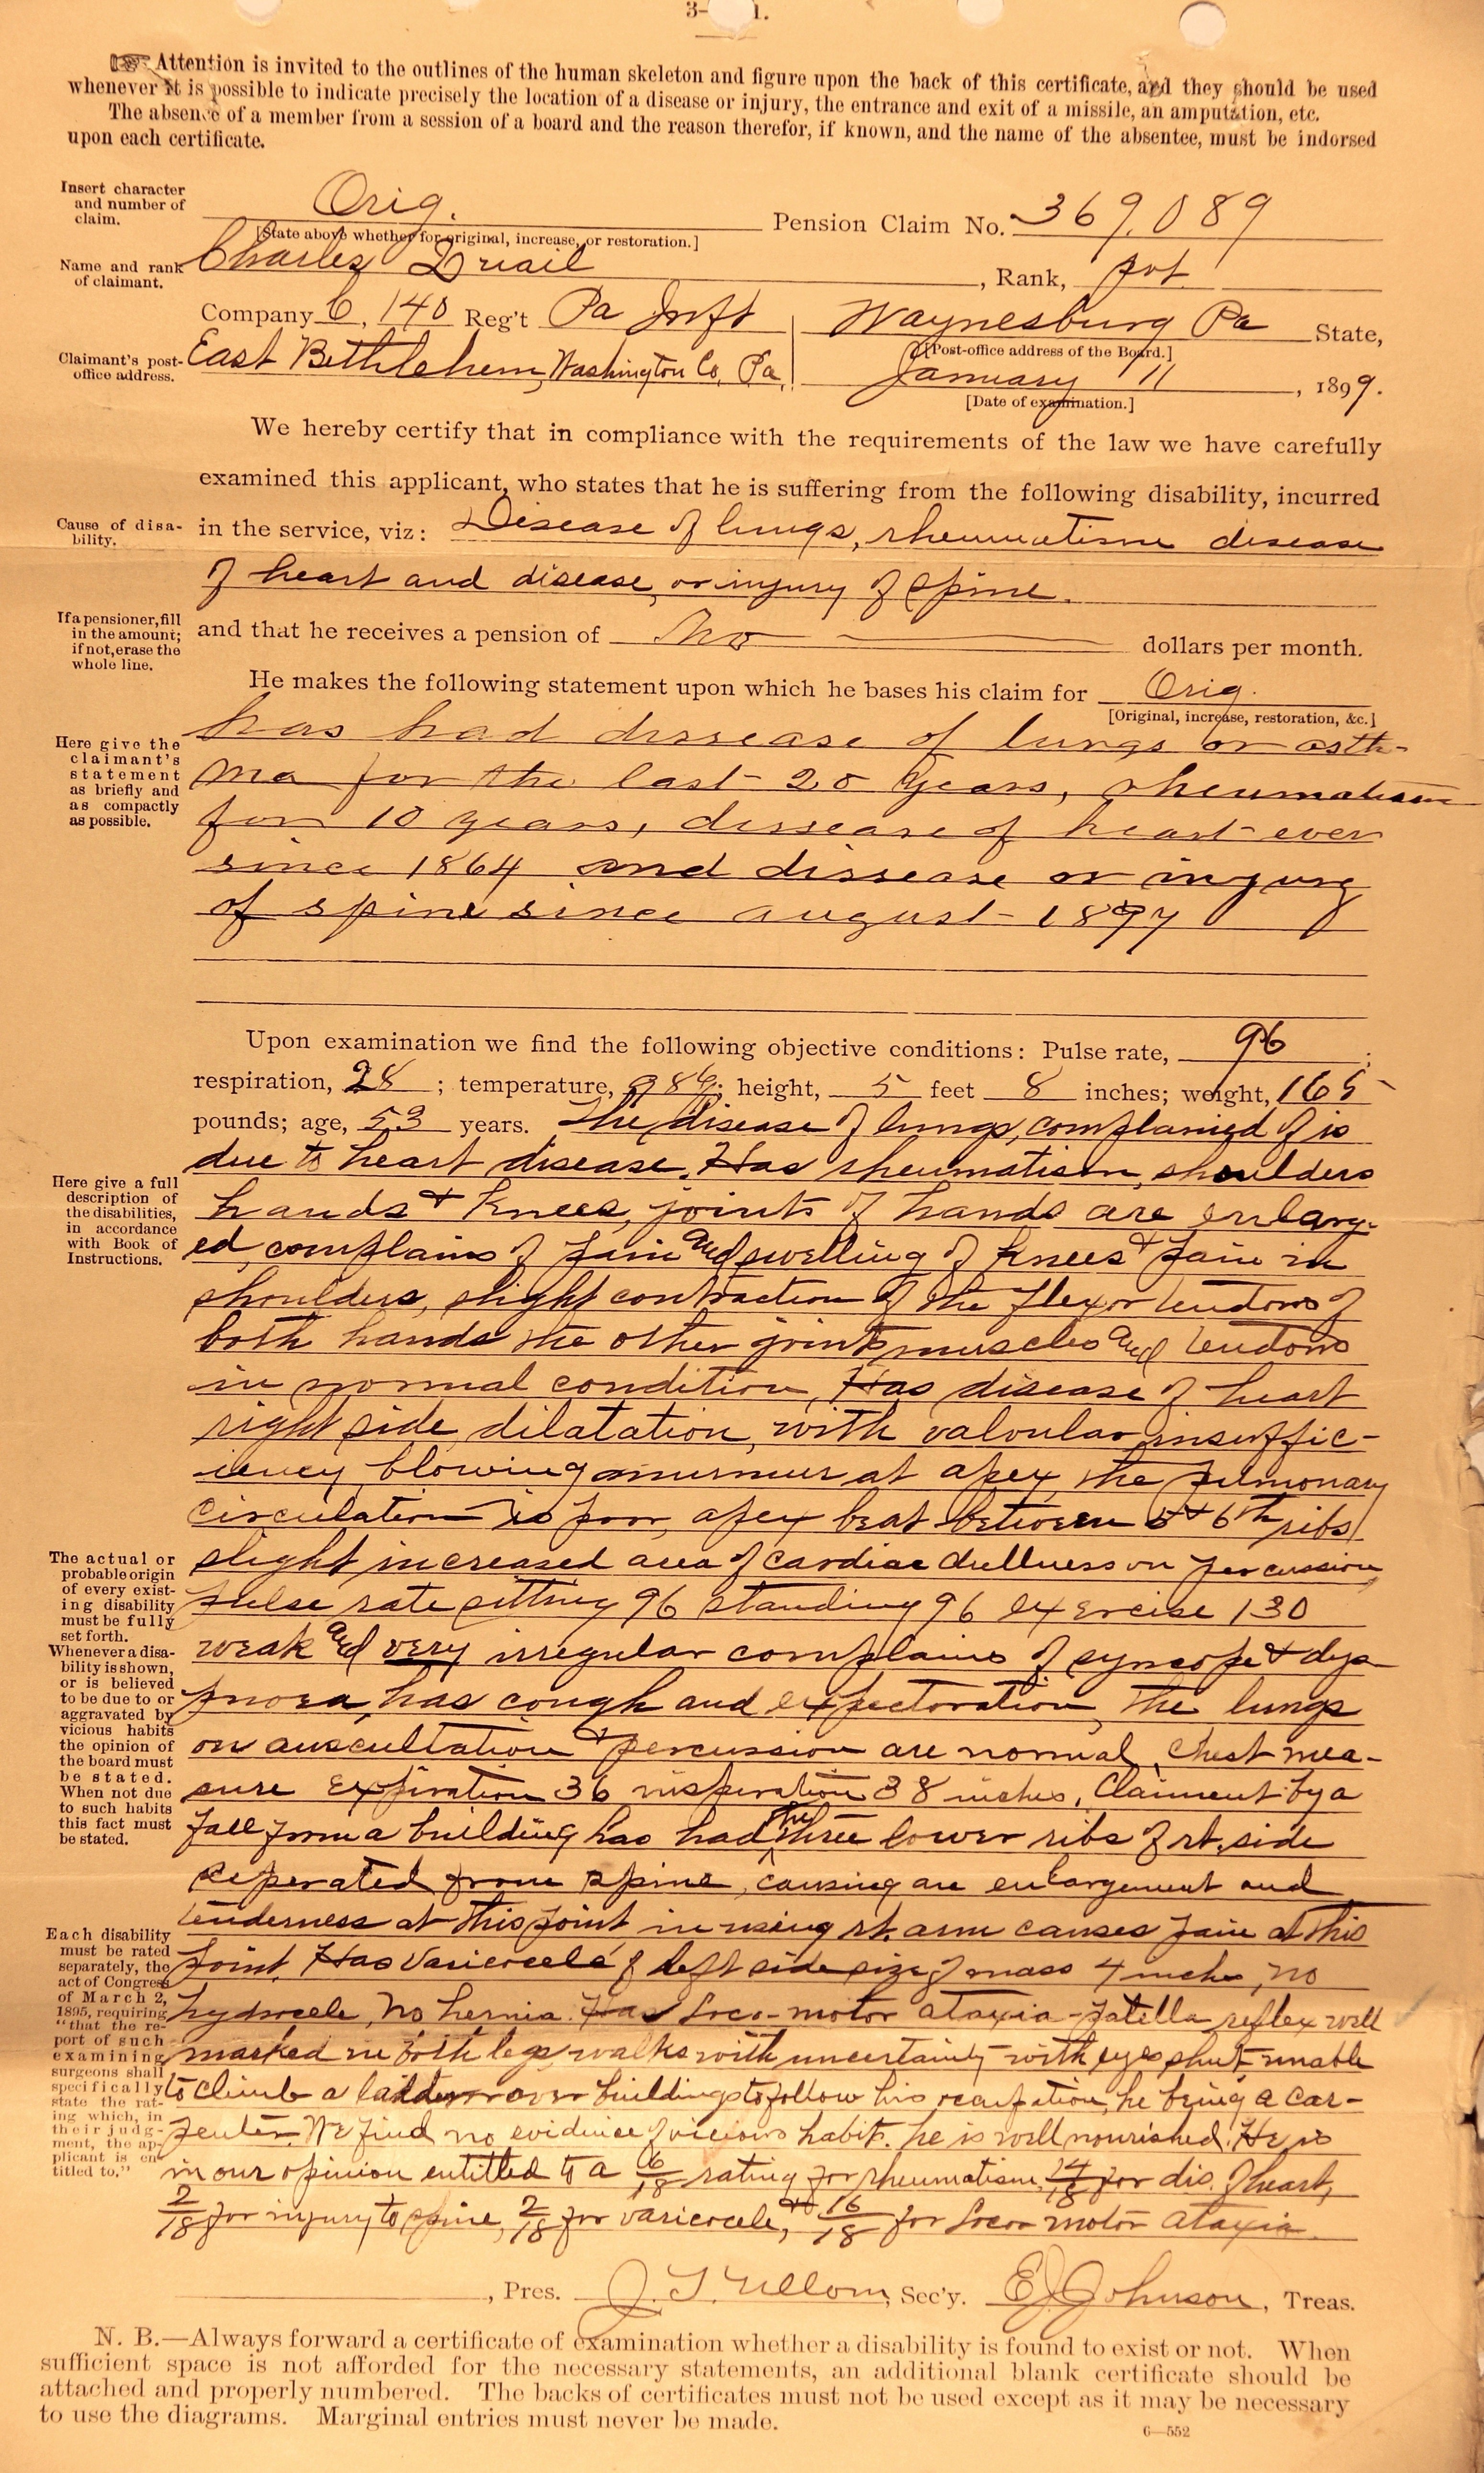 3- 1.
☞ Attention is invited to the outlines of the human skeleton and figure upon the back of this certificate, and they should be used
whenever it is possible to indicate precisely the location of a disease or injury, the entrance and exit of a missile, an amputation, etc.
The absence of a member from a session of a board and the reason therefor, if known, and the name of the absentee, must be indorsed
upon each certificate.
Insert character
and number of
claim.
Orig. Pension Claim No. 369,089
[State above whether for original, increase, or restoration.]
Name and rank
of claimant.
Charles Quail, Rank, pvt.
Company C, 140 Reg't Pa Inft Waynesburg Pa State,
[Post-office address of the Board.]
Claimant's post-
office address.
East Bethlehem, Washington Co, Pa. January 11, 1899.
[Date of examination.]
We hereby certify that in compliance with the requirements of the law we have carefully
examined this applicant, who states that he is suffering from the following disability, incurred
Cause of disa-
bility.
in the service, viz: Disease of lungs, rheumatism disease
of heart and disease, or injury of spine.
If a pensioner, fill
in the amount;
if not, erase the
whole line.
and that he receives a pension of No dollars per month.
He makes the following statement upon which he bases his claim for Orig.
[Original, increase, restoration, &c.]
Here give the
claimant's
statement
as briefly and
as compactly
as possible.
has had dissease of lungs or asth-
ma for the last 20 years, rheumatism
for 10 years, dissease of heart ever
since 1864 and dissease or injury
of spine since august - 1897
Upon examination we find the following objective conditions: Pulse rate, 96;
respiration, 28; temperature, 98 6/; height, 5 feet 8 inches; weight, 165
pounds; age, 53 years. The disease of lungs, complained of is
due to heart disease. Has rheumatism, shoulders
Here give a full
description of
the disabilities,
in accordance
with Book of
Instructions.
hands & knees, joints of hands are enlarg-
ed, complains of pain and swelling of knees & pain in
shoulders, slight contraction of the flexor tendons of
both hands the other joints muscles and tendons
in normal condition, Has disease of heart
right side, dilatation, with valvular insuffic-
iency, blowing murmur at apex, the pulmonary
circulation is poor, apex beat between 5 & 6th ribs
slight increased area of cardiac dullness on percussion
The actual or
probable origin
of every exist-
ing disability
must be fully
set forth.
Whenever a disa-
bility is shown,
or is believed
to be due to or
aggravated by
vicious habits
the opinion of
the board must
be stated.
When not due
to such habits
this fact must
be stated.
pulse rate sitting 96 standing 96 exercise 130
weak and very irregular complains of syncope & dys-
pnoea, has cough and expectoration, the lungs
on auscultation & percussion are normal, Chest mea-
sure Expiration 36 inspiration 38 inches. Claiment by a
fall from a building has had the three lower ribs of rt. side
seperated from spine, causing are enlargement and
tenderness at this point, in using rt. arm causes pain at this
Each disability
must be rated
separately, the
act of Congress
of March 2,
1895, requiring
"that the re-
port of such
examining
surgeons shall
specifically
state the rat-
ing which, in
their judg-
ment, the ap-
plicant is en-
titled to."
point. Has Varicocele of left side size of mass 4 inches, no
hydrocele, No hernia. Has Loco-motor ataxia - patella reflex well
marked in both legs, walks with uncertainty with eyes shut - unable
to climb a ladder or over buildings to follow his occupation, he being a car-
penter. We find no evidence of vicious habit. he is well nourished. He is
in our opinion entitled to a 6/18 rating for rheumatism, 14/18 for dis. of heart,
2/18 for injury to spine, 2/18 for varicocele, & 16/18 for Loco motor ataxia.
, Pres. J. T. Ullom, Sec'y. E J Johnson, Treas.
N. B.—Always forward a certificate of examination whether a disability is found to exist or not. When
sufficient space is not afforded for the necessary statements, an additional blank certificate should be
attached and properly numbered. The backs of certificates must not be used except as it may be necessary
to use the diagrams. Marginal entries must never be made.
6—552